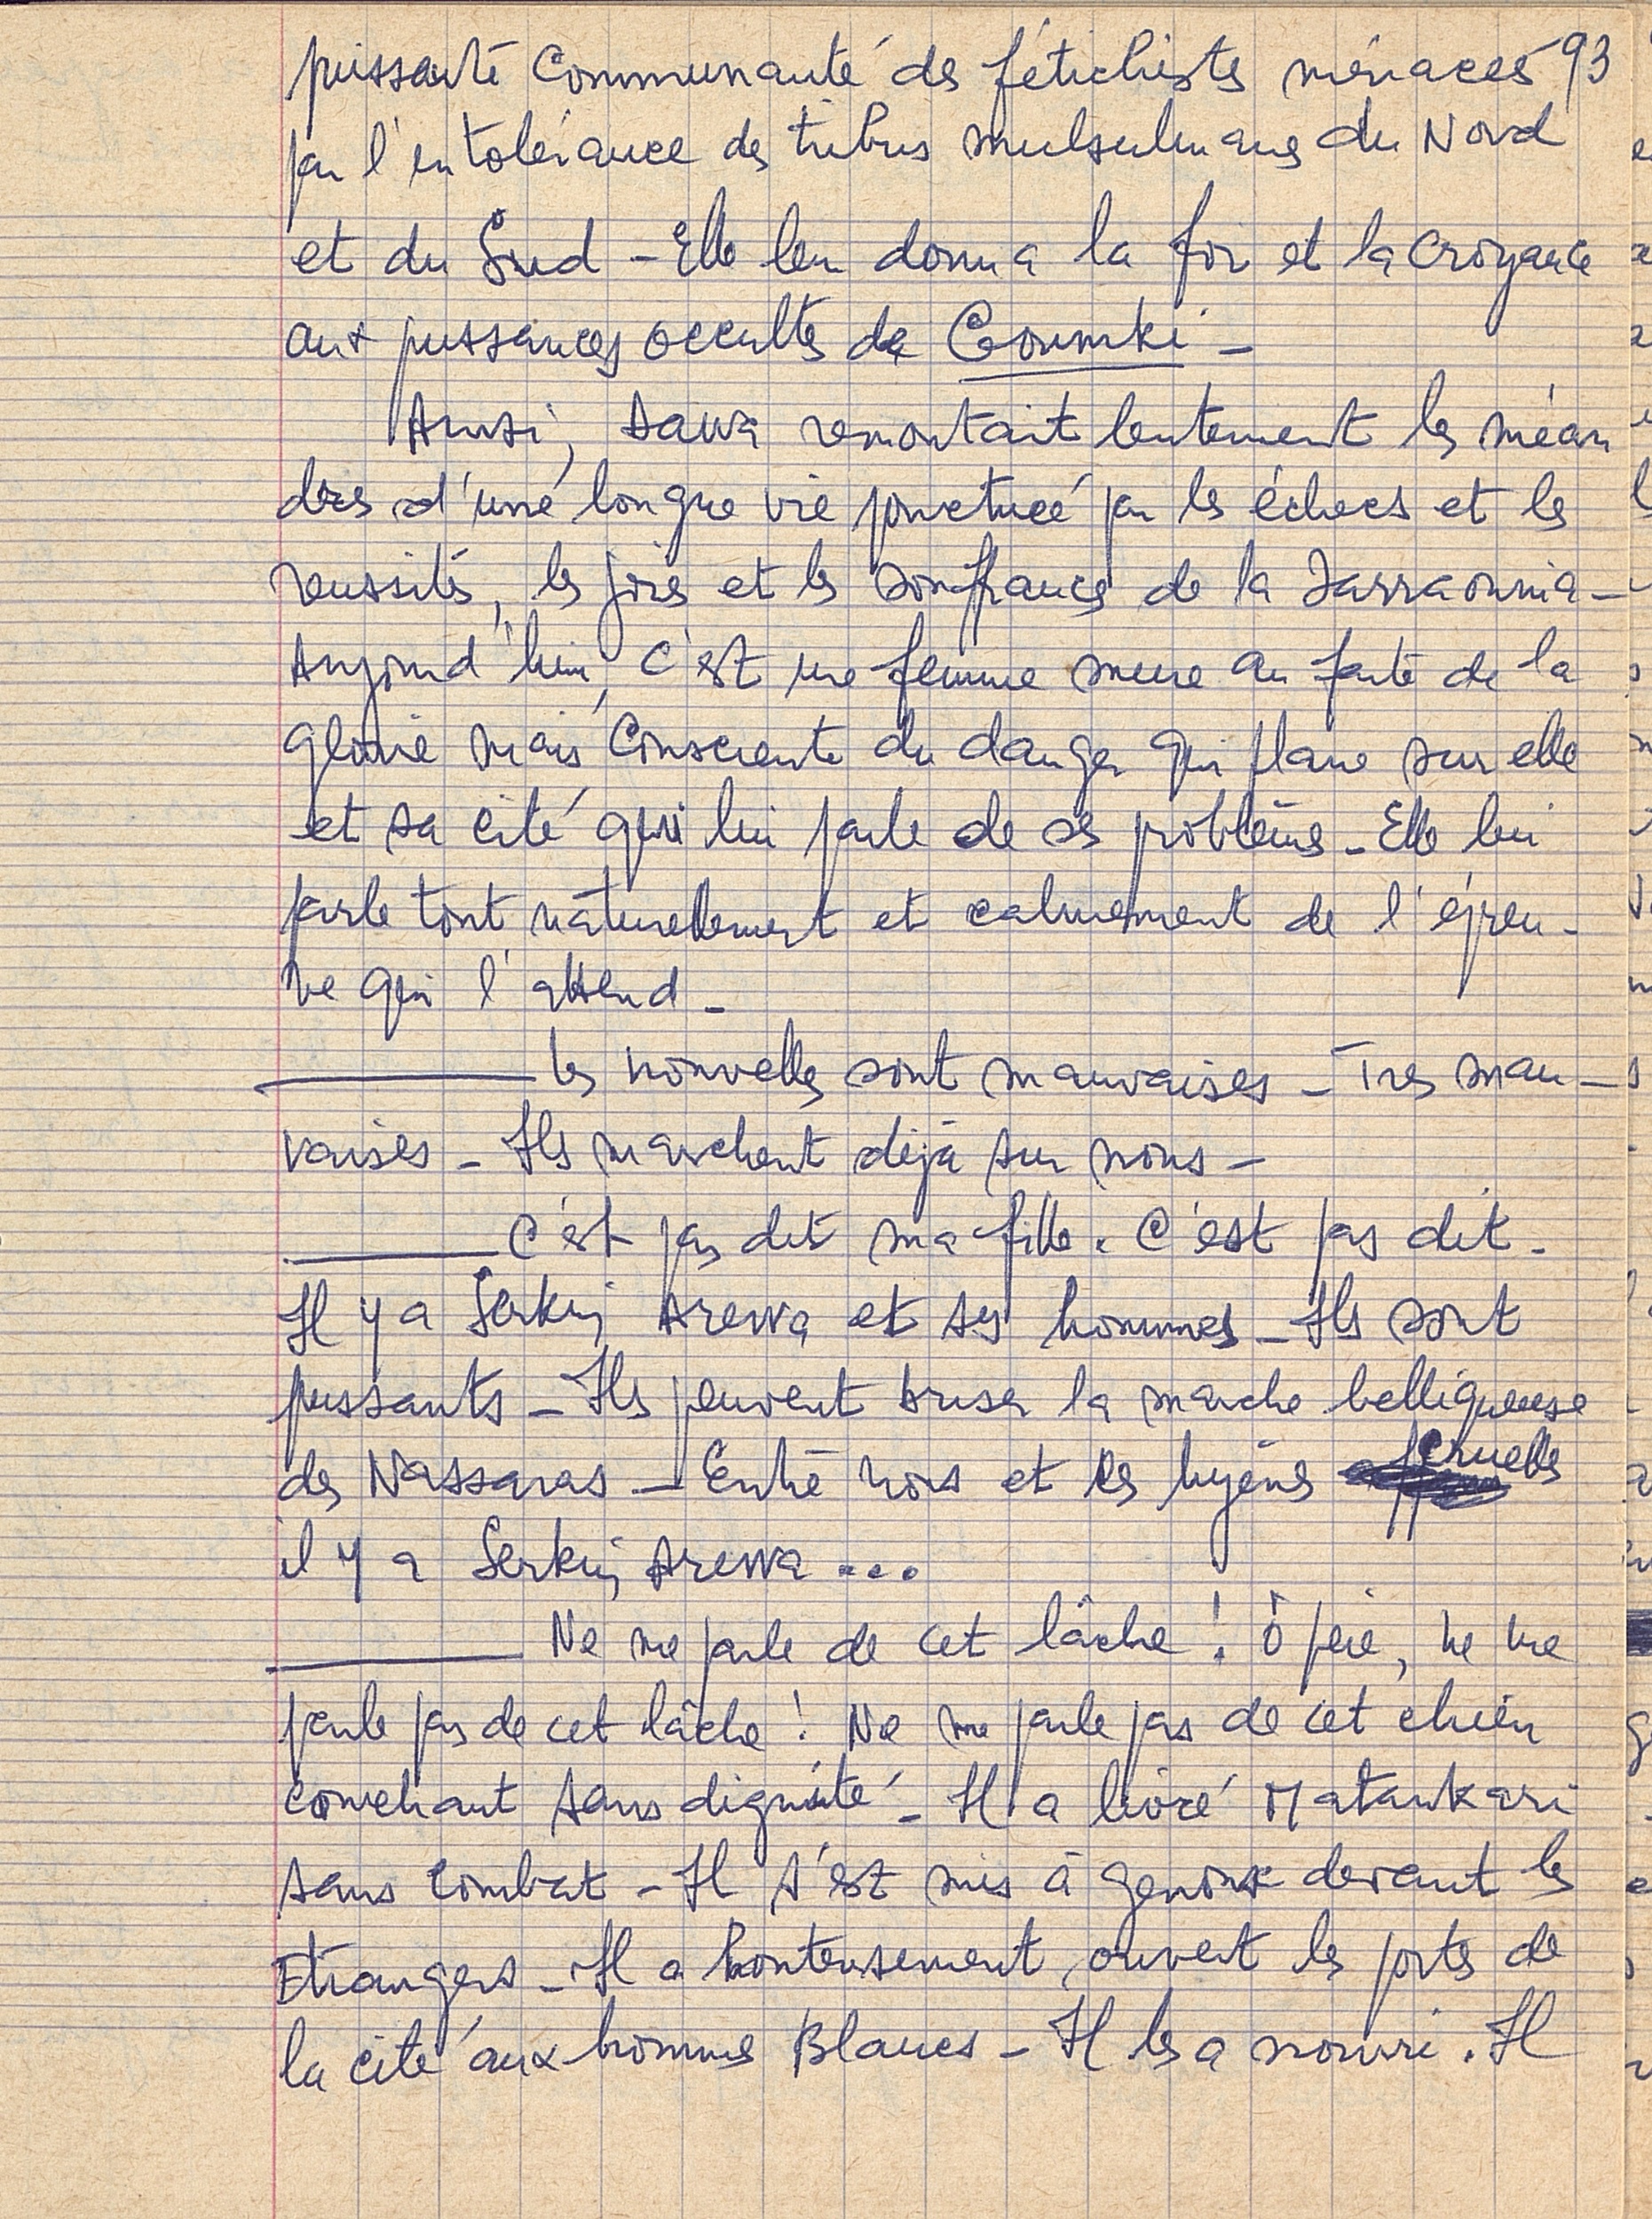 puissante Communauté des fétichistes ménacés 93
par l'intolérance des tribus mulsulmanes du Nord
et du Sud - Elle leur donna la foi et la Croyance
aux puissances occultes de Goumki -
Ainsi, Dawa remontait lentement les méan
dres d'une longue vie ponctuée par les échecs et les
réussites, les joies et les souffrances de la Sarraounia -
Aujourd'hui, c'est une femme mure au faite de la
gloire mais Consciente du danger qui plane sur elle
et sa cité qui lui parle de ses problèmes - Elle lui
parle tout naturellement et calmement de l'épreu-
ve qui l'attend -
— les nouvelles sont mauvaises - Très mau-
vaises - Ils marchent déjà sur nous -
— C'est pas dit ma fille. C'est pas dit -
Il y a Serkin Arewa et ses hommes - Ils sont
puissants - Ils peuvent briser la marche belliqueuse
des Nassaras - Entre nous et les hyènes cruelles
il y a Serkin Arewa ...
— Ne me parle de cet lâche ! ô père, ne me
parle pas de cet lâche ! Ne me parle pas de cet chien
couchant sans dignité - Il a livré Matankari
sans combat - Il s'est mis à genoux devant les
Etrangers - Il a honteusement ouvert les portes de
la cité aux hommes Blancs - Il les a nourri. Il